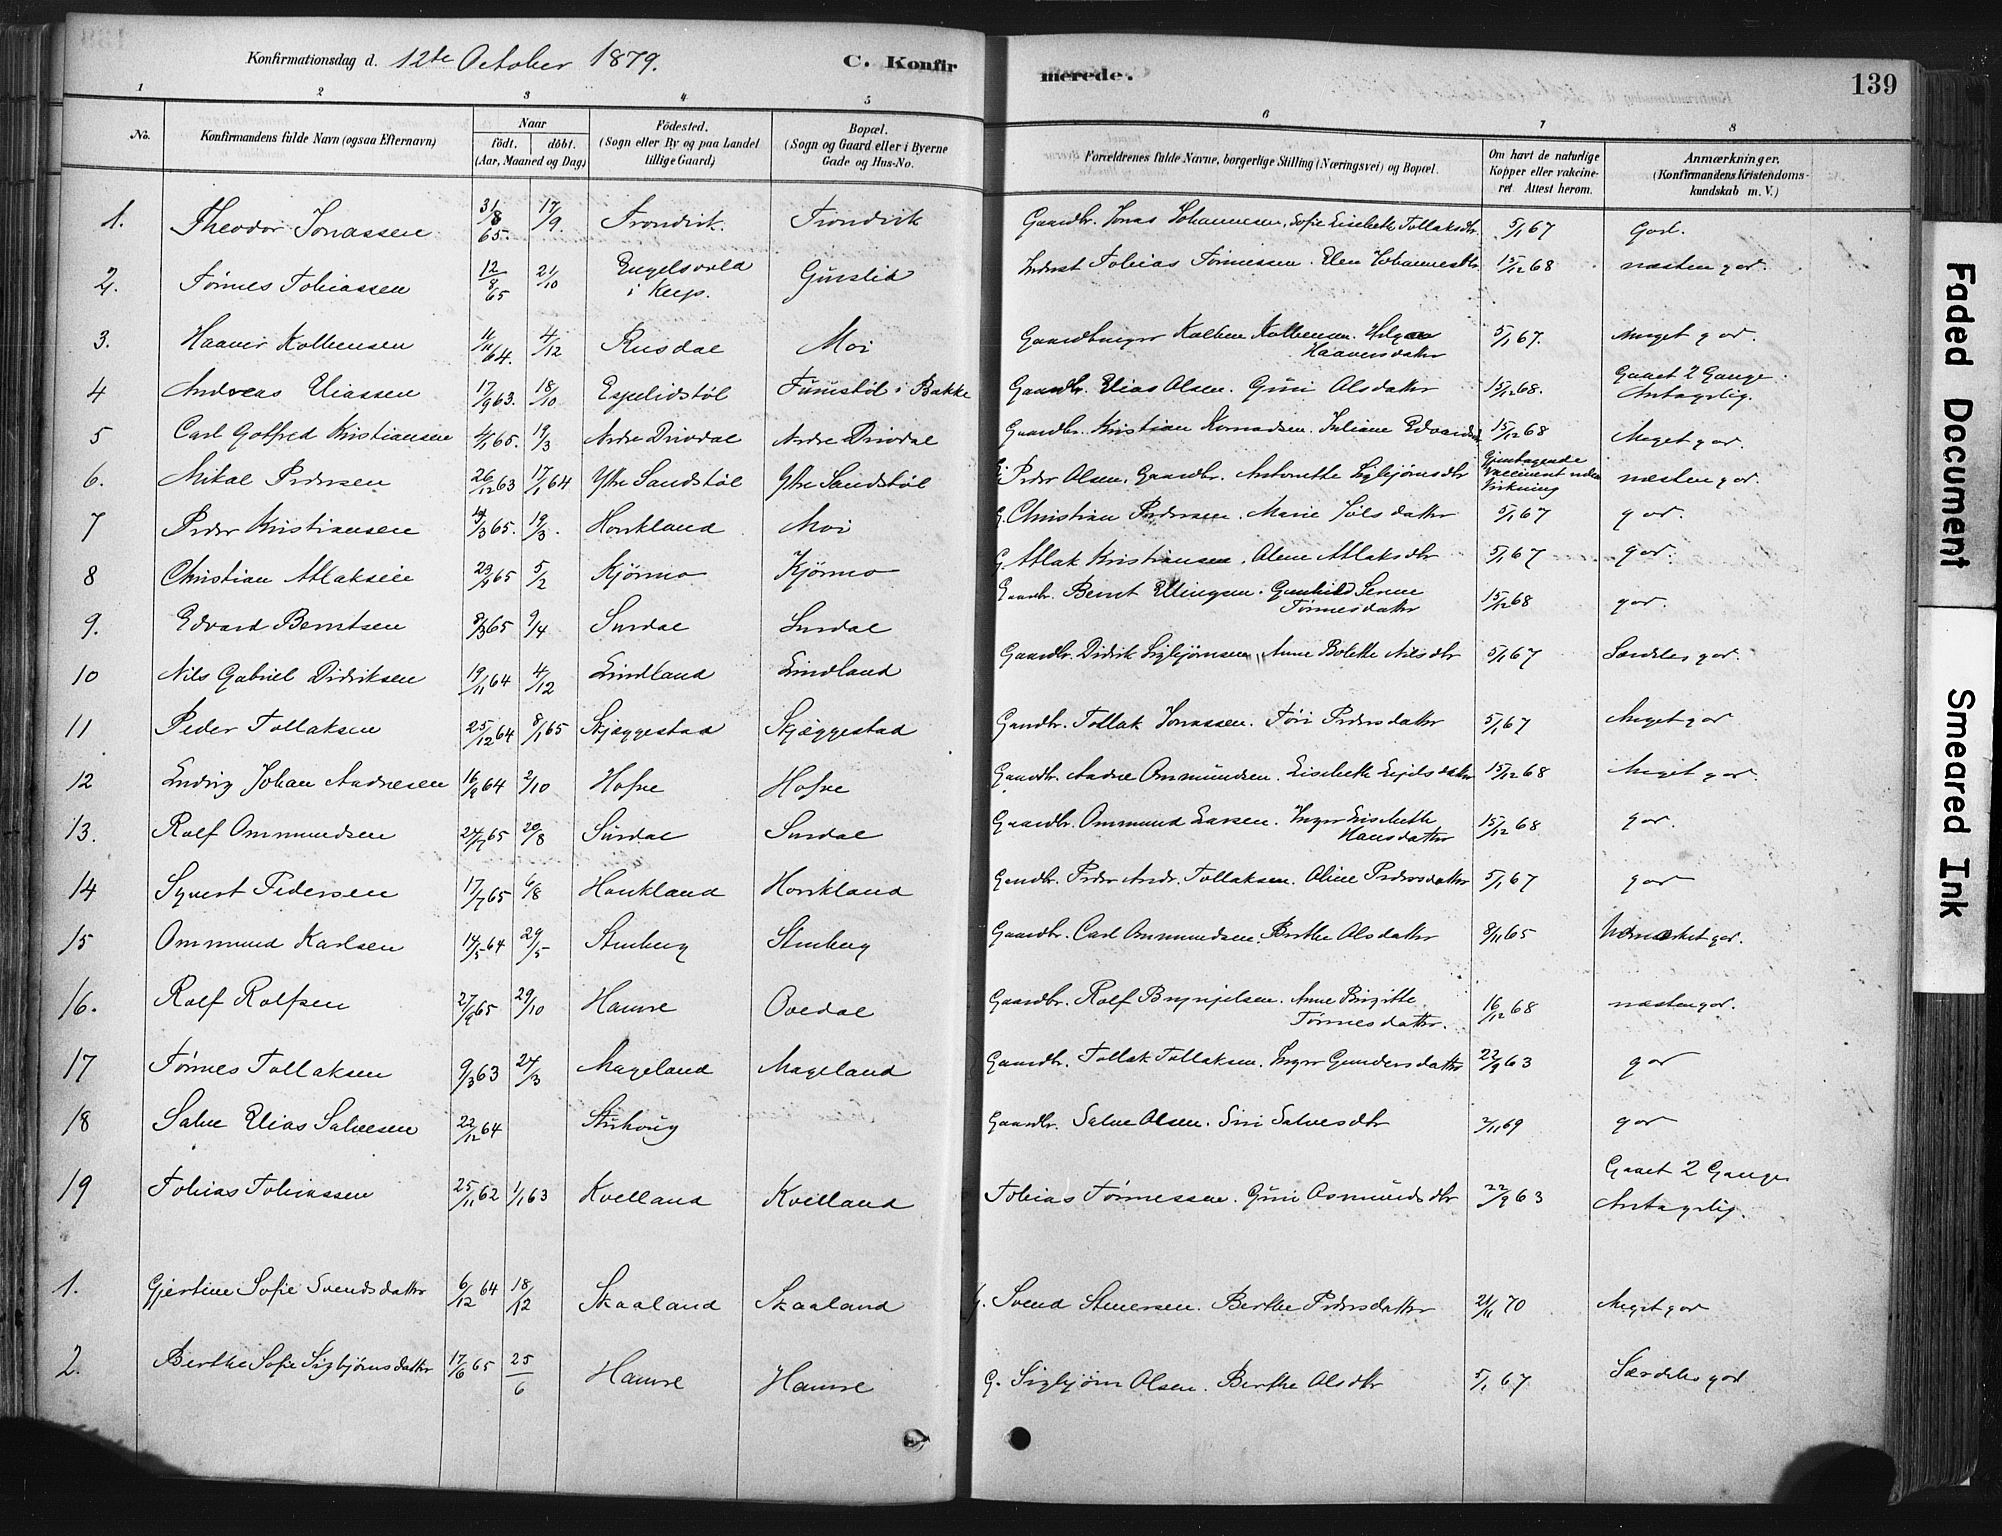 Konfirmationsdag d. 12te October 1879.
C. Konfir merede.
139
1 2 3 4 5 6 7 8
No.
Konfirmandens fulde Navn (ogsaa Efternavn)
Naar
födt. döbt.
(Aar, Maaned og Dag)
Födested.
(Sogn eller By og paa Landet
tillige Gaard)
Bopæl.
(Sogn og Gaard eller i Byerne
Gade og Hus-No.
Forældrenes fulde Navne, borgerlige Stilling (Næringsvei) og Bopæl.
Om havt de naturlige
Kopper eller vakcine-
ret Attest herom.
Anmærkninger.
(Konfirmandens Kristendoms-
kundskab m. V.)
1. Theodor Jonassen 31/8 65. 17/9. Trondvik. Trondvik Gaardbr. Jonas Johannesen, Sofie Lisebethe Tollaksdtr. 5/1 67 god.
2. Tønnes Tobiassen 12/8 65 21/10 Engelsvold i Klep. Gurslid Inderst Tobias Tønnessen. Elen Johannesdtr. 15/12 68 næsten god.
3. Haaver Kolbensen 11/11 64. 4/12 Rusdal Moi Gaardbruger Kolben Kolbensen. Helga Haaversdatter 5/1 67. Meget god.
4 Andreas Eliassen 17/9 63. 18/10 Espelidstøl i Bakke Gaardbr. Elias Olsen. Guri Olsdatter 15/12 68. Gaaet 2 Gange. Antagelig.
5 Carl Gotfred Kristiansen 4/1 65. 19/3 Andre Drivdal Andre Drivdal Gaardbr. Kristian Kornadsen. Juliane 15/12 68 Meget god.
6. Mikal Pedersen 26/12 63 17/1 64 Ytre Sandstøl Ytre Sandstøl Peder Olsen, Gaardbr. Antonette Sigbjørnsdtr Gjentagende vaccineret uden Virkning næsten god.
7 Peder Kristiansen 14/3 65. 19/3. Honkland Moi G. Christian Pedersen. Marie Joelsdatter 5/1 67 god.
8 Christian Atlaksen 5/2 Kjørmo Kjørmo G. Atlak Kristiansen, Olene Atlaksdtr 5/1 67 god.
9. Edvard Berntsen 8/3 65 9/4 Surdal Surdal Gaardbr. Bernt Ellingsen. Gunhild Serine Tønnesdatter 15/12 68 god.
10 Nils Gabriel Didriksen 19/11 64 4/12 Lindland Lindland Gaardbr. Didrik Sigbjørnsen, Anne Bolette Nilsdtr 5/1 67 Særdeles god.
11 Peder Tollaksen 25/12 64 8/1 65 Skjæggestad Skjæggestad Gaardbr. Tollak Jonassen. Tøri Pedersdatter 5/1 67 Meget god
12 Ludvig Johan Andresen 16/9 64 2/10 Hofve Hofve Gaardbr. Andre Ommundsen. Lisebethe Eyelsdatter 15/12 68 Meget god.
13. Rolf Ommundsen 24/7 65 20/8 Surdal Surdal Gaardbr. Ommund Larsen. Inger Lisebethe Hansdatter 15/12 68 god.
14 Syvert Pedersen 17/7 65 6/8 Honkland Honkland Gaardbr. Peder Andr. Tollaksen. Oline Pedersdatter 5/1 67 god
15 Ommund Karlsen 14/5 64 29/5 Stenberg Stenberg Gaardbr. Carl Ommundsen. Berthe Olsdatter 8/11 65 Udmærket god.
16. Rolf Rolfsen 27/9 65 29/10 Hamre Ovedal Gaardbr. Rolf Brynjelsen. Anne Birgitte Tønnesdatter. 16/12 68 næsten god.
17 Tønnes Tollaksen 9/3 63 24/3 Mageland Mageland Gaardbr. Tollak Tollaksen. Inger Gundersdatter 22/9 63 god
18 Salve Elias Salvesen 22/12 64 Gaardbr. Salve Olsen. Siri Salvesdtr 2/11 69 god
19 Tobias Tobiassen 25/11 62 1/1 63 Kvelland Kvelland Tobias Tønnessen. Guri Osmundsdtr 22/9 63 Gaaet 2 Gange Antagelig.
1. Gjertine Sofie Svendsdatter 6/12 64 18/12 Skaaland Skaaland G. Svend Stenersen. Berthe Pedersdatter 21/11 70 Meget god
2. Berthe Sofie Sigbjørnsdatter 17/6 65 25/6 Hamre Hamre G. Sigbjørn Olsen. Berthe Olsdtr 5/1 67 Særdeles god
Faded Document
Smeared Ink